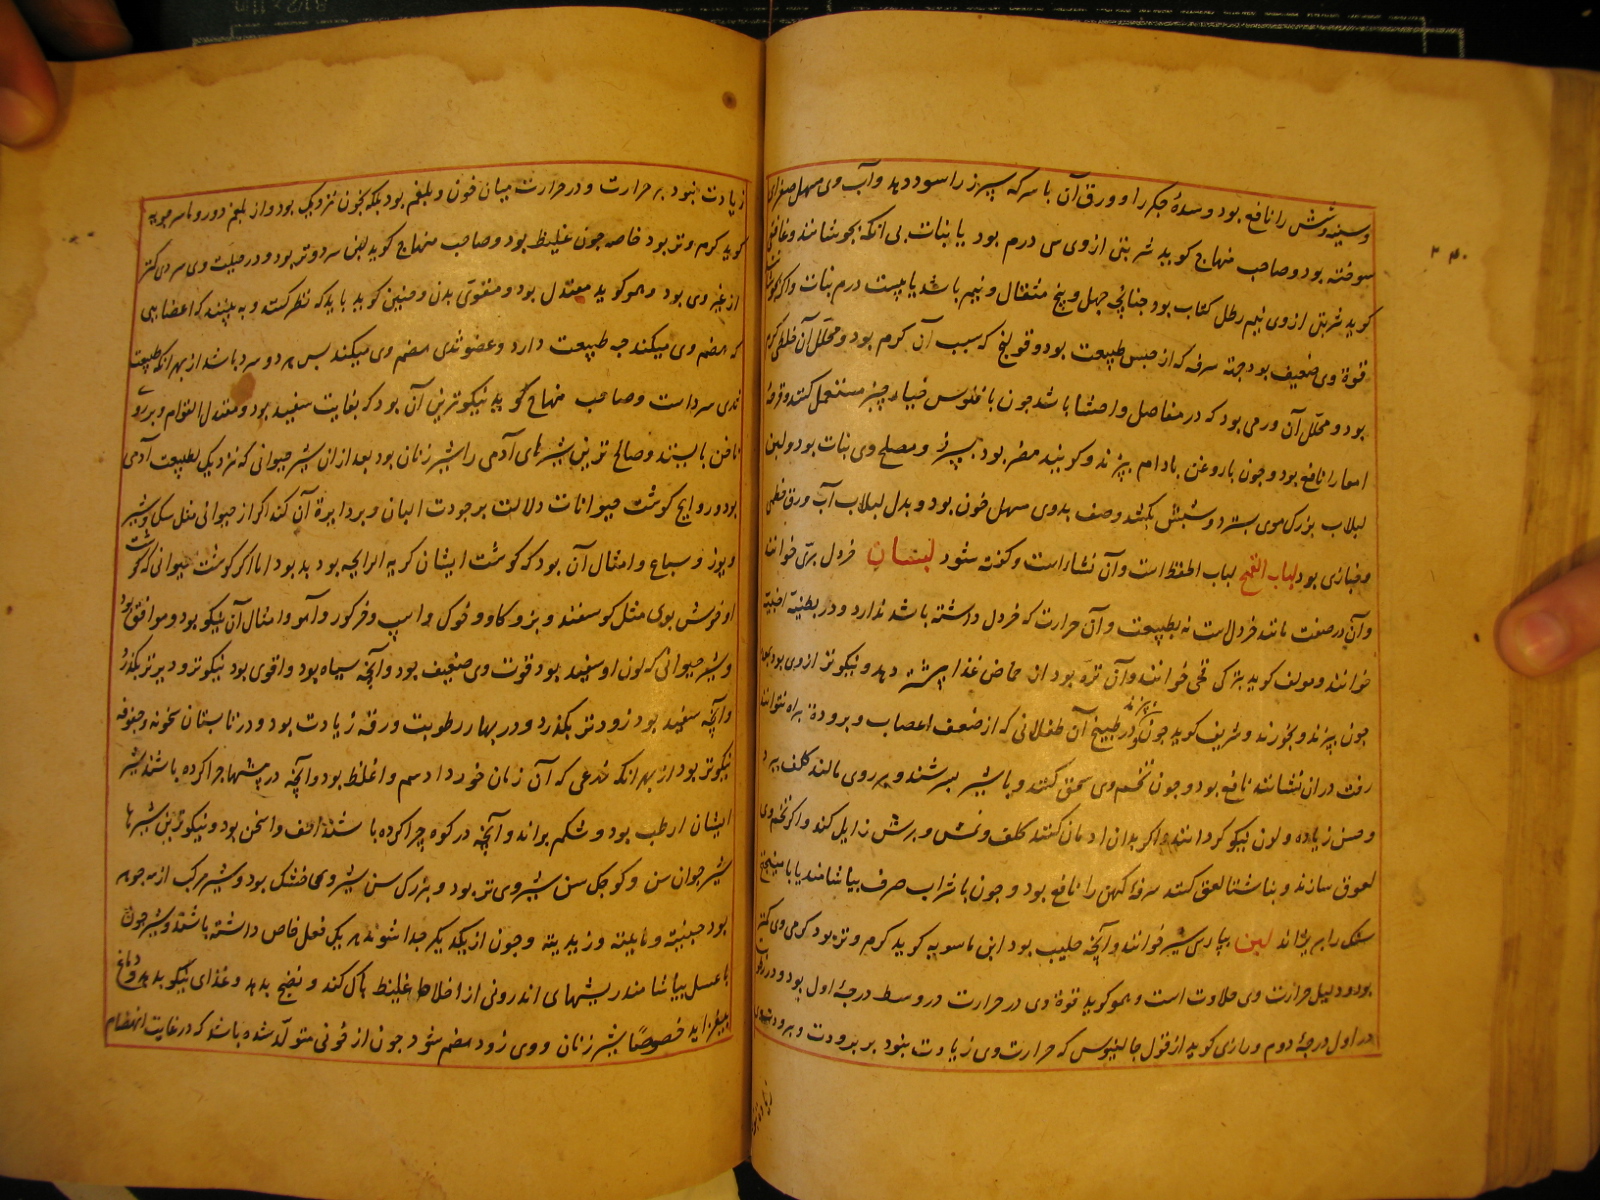 وسینه و شش را نافع بود و سدهٔ جکر را و ورق آن با سرکه سپرز را سود دهد و آب وی مسهل صفرای
سوخته بود و صاحب منهاج کوید شربتی از وی سی درم بود با نبات بی انکه بجوشانند و غافقی
کوید شربتی از وی نیم رطل کتاب بود چنانچه چهل و پنج مثقال و نیم باشد با بیست درم نبات و اکر بجوشانند
قوة وی ضعیف بود جهته سرفه که از حبس طبیعت بود و قولنج که سبب آن کرم بود و محلل آن خلطی کرم
بود و محلل آن ورمی بود که در مفاصل و احشا باشد چون با فلوس خیار چنبر مستعمل کنند و قرحهٔ
امعا را نافع بود و چون با روغن بادام بپزند و کویند مضر بود بسپرز و مصلح وی نبات بود و لبن
لبلاب بزرک موی بسترد و شپش بکشد و صف بدوی مسهل خون بود و بدل لبلاب آب ورق خطمی
و خبازی بود لباب القمح لباب الحنطه است و آن نشا است و کفته شود لبسان خردل بری خوانند
و آن در صفت مانند خردل است نه بطبیعت و آن حرارت که خردل داشته باشد ندارد و در
خوانند و مولف کوید بترکی قجی خوانند و آن تره بود از حماض غذا بیشتر دهد و نیکوتر از وی بود بمعده
چون بپزند و بخورند و شریف کوید چون بپزند و در طبیخ آن طفلانی که از ضعف اعصاب و برودة براه نتوانند
رفت در ان نشانند نافع بود و چون تخم وی سحق کنند و با شیر بسرشند و بر روی مالند کلف ببرد
و حسن زیاده و لون نیکو کردانند و اکر بدان ادمان کنند کلف و نمش و برش زایل کند و اکر تخم وی
لعوق سازند و بناشتا لعق کنند سرفهٔ کهن را نافع بود و چون با شراب صرف بیاشامند یا با میفختج
سنک را بریزاند لبن بپارسی شیر خوانند و آنچه حلیب بود ابن ماسویه کوید کرم و تر بود کرمی وی کمتر
بود و دلیل حرارت وی حلاوت است و همو کوید قوة وی در حرارت در وسط درجهٔ اول بود و در رطوبت
در اول درجهٔ دوم و رازی کوید از قول جالینوس که حرارت وی زیادت بنود بر برودت و برودت وی
زیادت نبود بر حرارت و در حرارت میان خون و بلغم بود بلکه بخون نزدیک بود و از بلغم دور و ماسرجویه
کوید کرم و تر بود خاصه چون غلیظ بود و صاحب منهاج کوید لبن سرد و تر بود و در حلیت وی سردی کمتر
از غیر وی بود و همو کوید معتدل بود و مقوی بدن و حنین کوید باید که نظر کنند و به بینند که اعضایی
که هضم وی میکند چه طبیعت دارد و عضو ثدی هضم وی میکند پس هر دو سرد باشد از بهر آنکه طبیعت
ثدی سرد است و صاحب منهاج کوید نیکوترین آن بود که بغایت سفید بود و معتدل القوام و بر روی
ناخن بایستد و صالح ترین شیرهای آدمی را شیر زنان بود بعد از ان شیر حیوانی که نزدیک بطبیعت آدمی
بود و روایح کوشت حیوانات دلالت بر جودت البان و بر دایرة آن کند اکر از حیوانی مثل سک و شیر
و یوز و سباع و امثال آن بود که کوشت ایشان کریه الرایحه بود بد بود اما اکر کوشت حیوانی که کوشت
او خوش بوی مثل کوسفند و بز و کاو و خوک و اسپ و خر کور و آهو و امثال آن نیکو بود و موافق بود
و شیر حیوانی که لون او سفید بود قوت وی ضعیف بود و آنچه سیاه بود و اقوی بود نیکوتر و دیرتر بکذرد
و آنچه سفید بود زودتر بکذرد و در بهار رطوبت و رقه زیادت بود و در تابستان سخونه و جفوفه
نیکوتر بود از بهر انکه مرعی که آن زمان خورد ادسم و اغلظ بود و آنچه در چرا کرده باشند شیر
ایشان ارطب بود و شکم براند و آنچه در کوه چرا کرده باشند اخف و اسخن بود و نیکوترین شیرها
شیر جوان سن و کوچک سن شیر وی تر بود و بزرک سن شیر وی خشک بود و شیر مرکب از سه جوهر
بود جبنیته و مائیته و زبدیته و چون از یکدیکر جدا شوند هر یک فعل خاص داشته باشند و شیر چون
با عسل بیاشامند ریشهای اندرونی از اخلاط غلیظ پاک کند و نضج بدهد و غذای نیکو بدهد و دماغ
بیفزاید خصوصا شیر زنان و وی زود هضم شود چون از خونی متولد شده باشد که در غایت انهضام